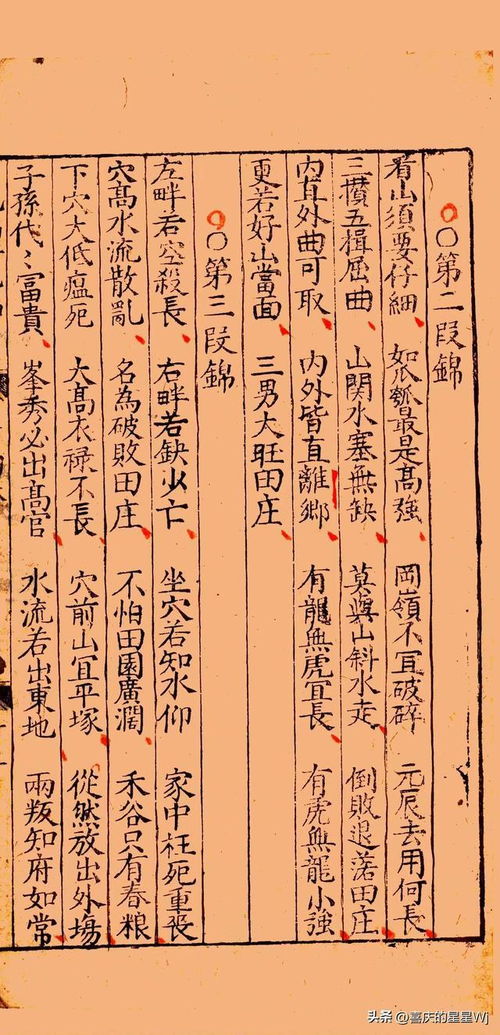 〇〇第二段錦
看山須要仔細 如爪瓠最是高強 岡嶺不宜破碎 元辰去用何長
三攢五楫屈曲 山関水塞無缺 莫與山斜水走 倒敗退落田庄
内直外曲可取 内外皆直離鄉 有龍無虎宜長 有虎無龍小強
更若好山當面 三男大旺田庄
〇〇第三段錦
左畔若空殺長 右畔若缺少亡 坐穴若知水仰 家中枉死重喪
穴高水流散亂 名為破敗田庄 不怕田園廣濶 禾谷只有春粮
下穴大低瘟死 大高衣祿不長 穴前山宜平塚 從然放出外塲
子孫代〻富貴 峯秀必出高官 水流若出東地 兩叛知府如常
头条 @喜庆的星星Wj